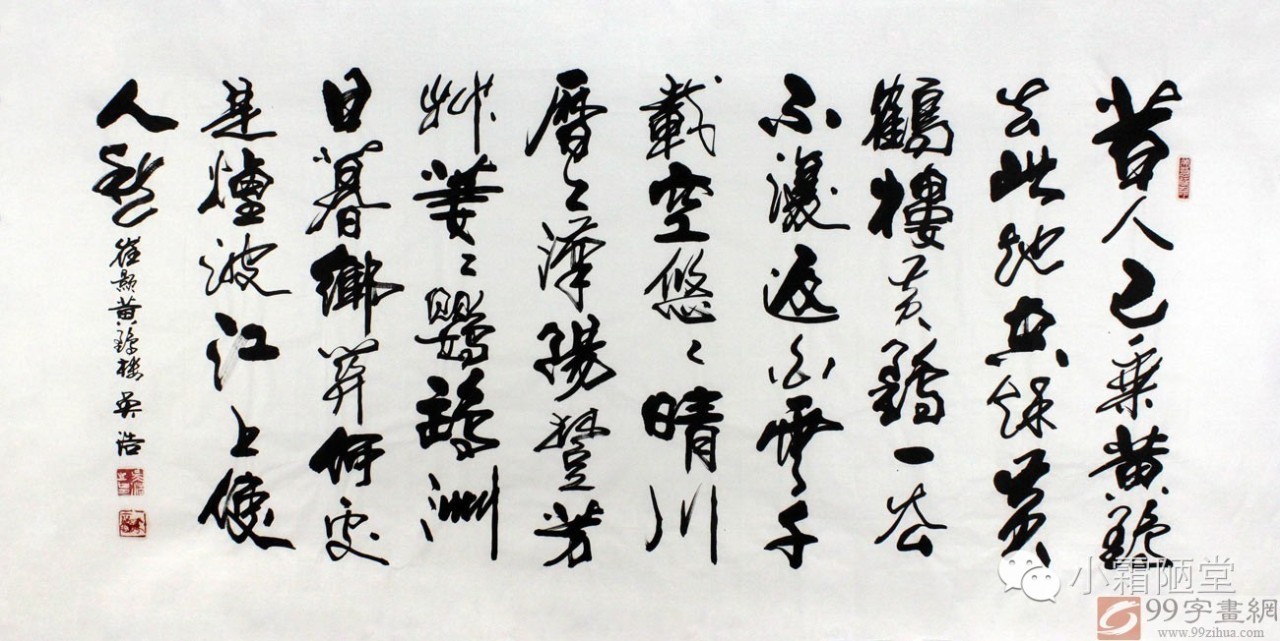 昔人已乘黄鶴
去此地空餘黄
鶴樓黄鶴一去
不復返白雲千
載空悠〻晴川
曆〻漢陽樹芳
艸萋〻鸚鵡洲
日暮鄉關何處
是煙波江上使
人愁
崔顥黄鶴樓 吳浩
小霜陋堂
99字畫網
www.99zihua.com